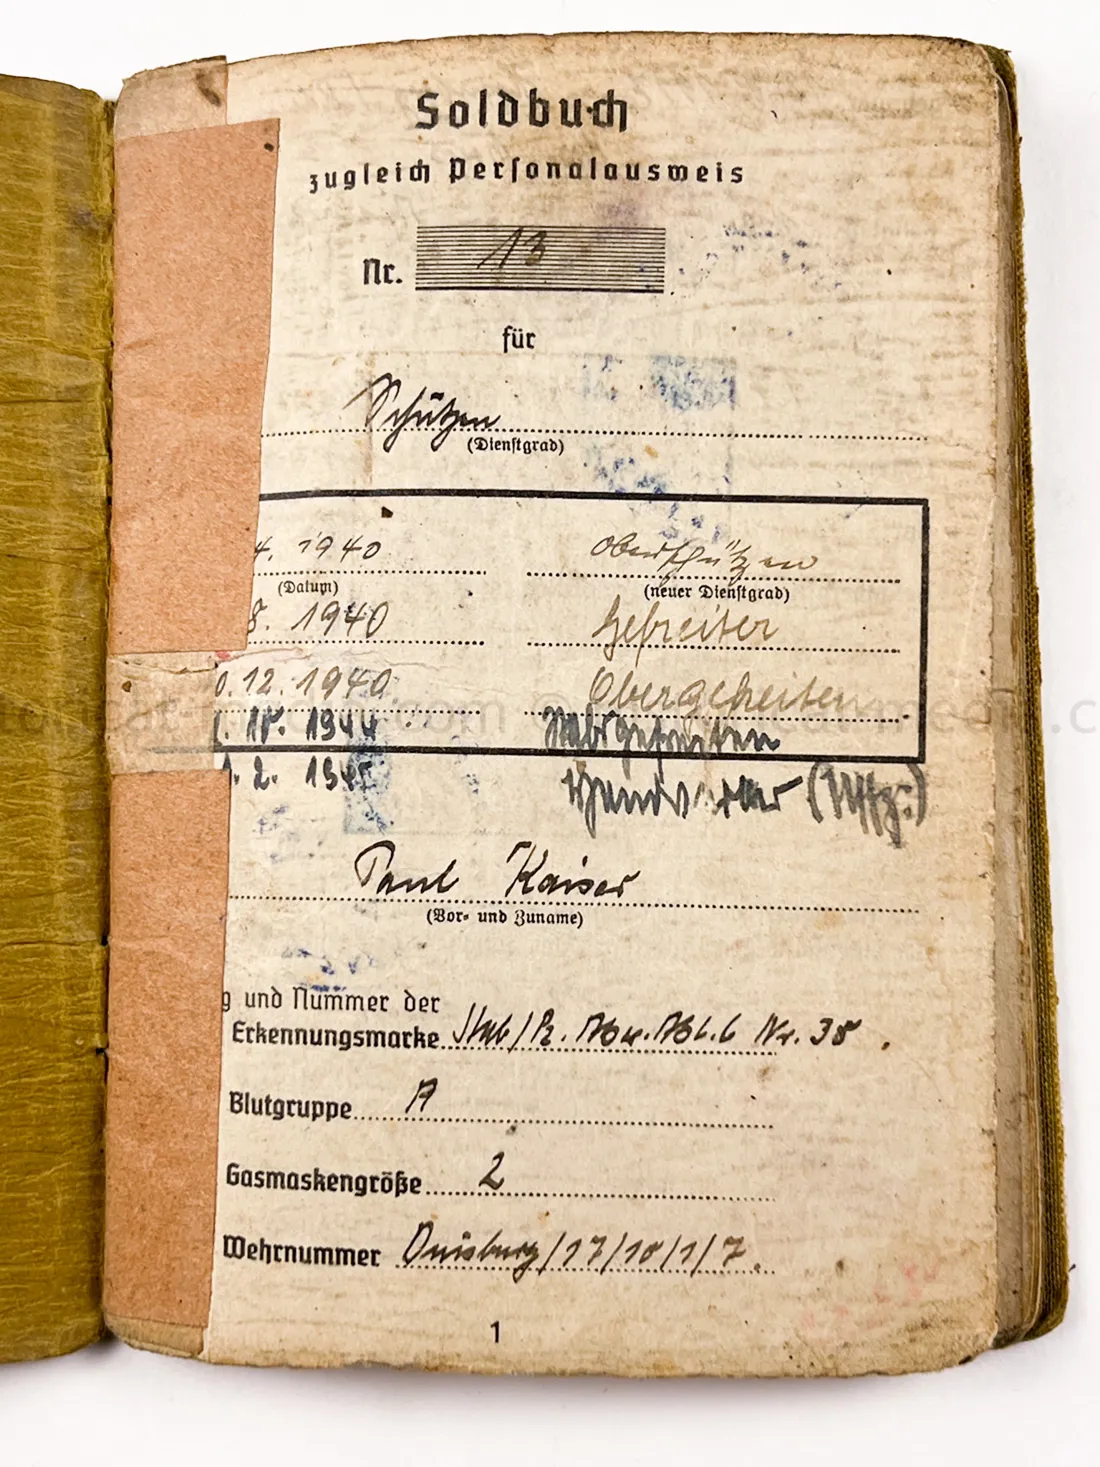 Soldbuch
zugleich Personalausweis
Nr. 13
für
Schützen
(Dienstgrad)
4. 1940 Oberschützen
(Datum) (neuer Dienstgrad)
8. 1940 Gefreiter
0.12. 1940 Obergefreiten
1944 Stabsgefreiten
1. 2. 1945 (Uffz.)
Paul Kaiser
(Vor- und Zuname)
g und Nummer der
Erkennungsmarke Stab/Pz. Abw. Abt. 6 Nr. 38
Blutgruppe A
Gasmaskengröße 2
Wehrnummer Duisburg/17/10/1/7
1